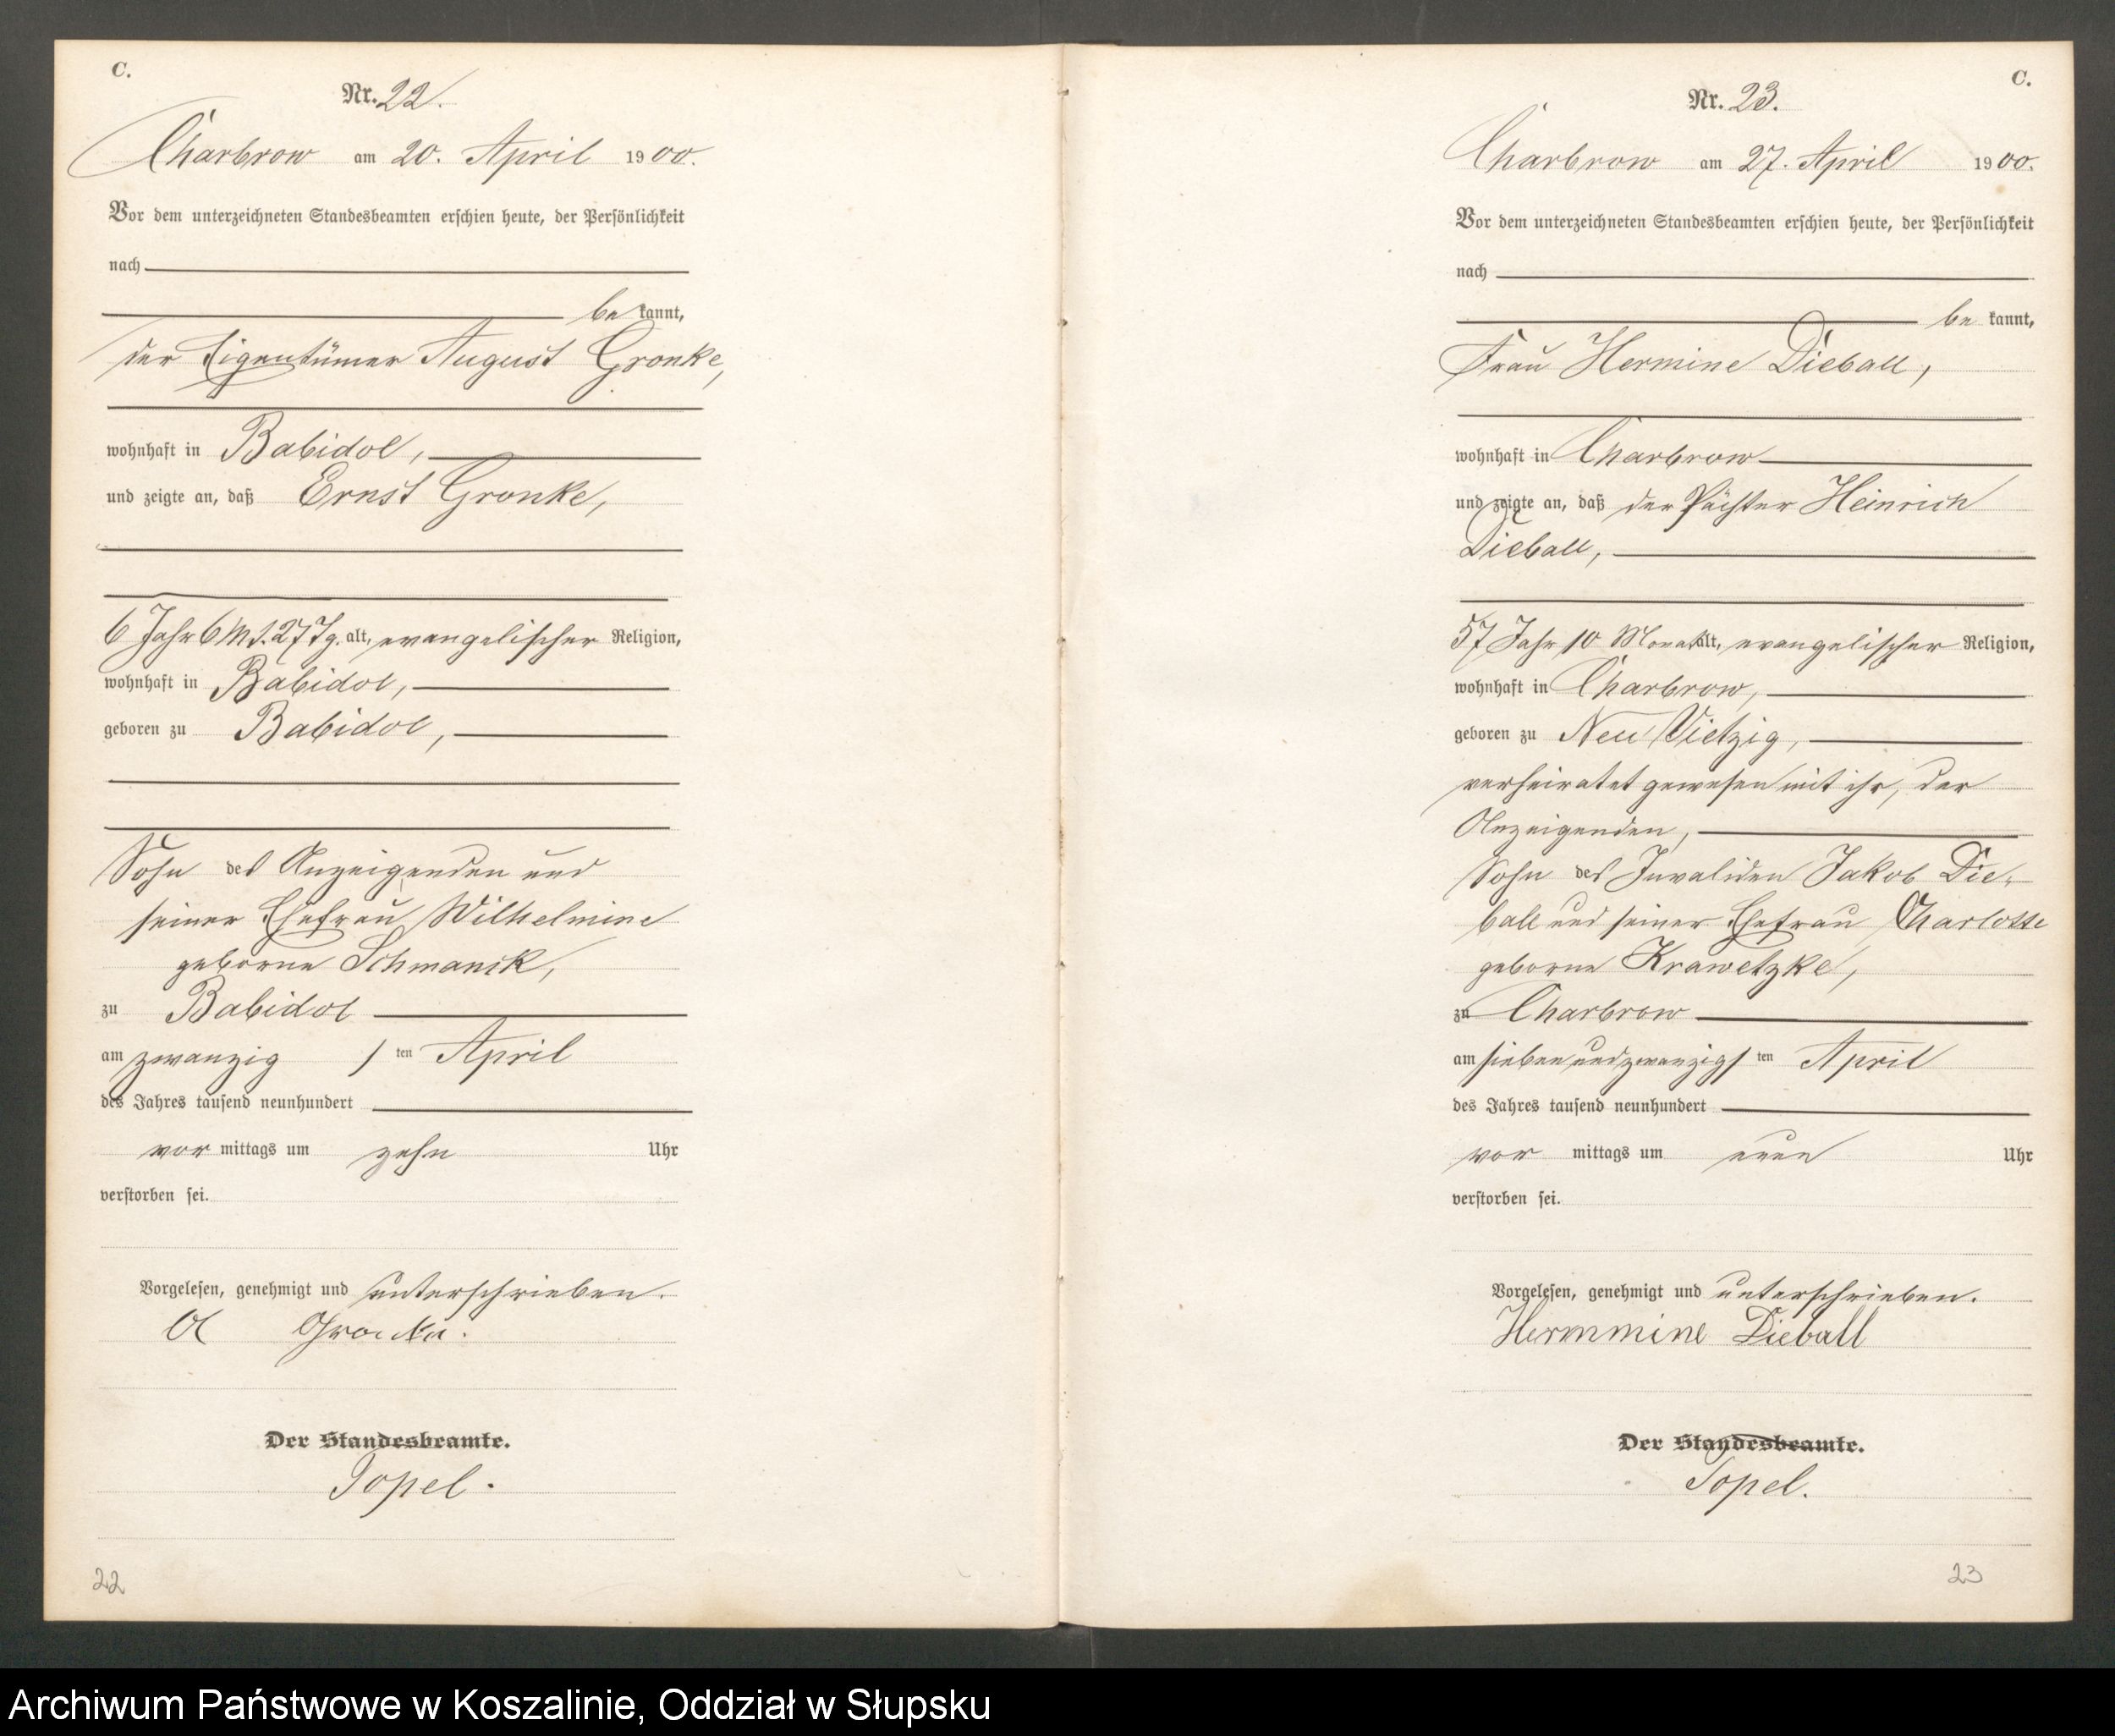 C.
Nr. 22.
Charbrow am 20. April 1900.
Vor dem unterzeichneten Standesbeamten erschien heute, der Persönlichkeit
nach
be kannt,
der Eigentümer August Gronke,
wohnhaft in Babidol,
und zeigte an, daß Ernst Gronke,
6 Jahr 6 Mt. 27 Tg. alt, evangelischer Religion,
wohnhaft in Babidol,
geboren zu Babidol,
Sohn des Anzeigenden und
seiner Ehefrau Wilhelmine
geborne Schmanck,
zu Babidol
am zwanzigsten April
des Jahres tausend neunhundert
vor mittags um zehn Uhr
verstorben sei.
Vorgelesen, genehmigt und unterschrieben.
A Gronke.
Der Standesbeamte.
Topel.
22
C.
Nr. 23.
Charbrow am 27. April 1900.
Vor dem unterzeichneten Standesbeamten erschien heute, der Persönlichkeit
nach
be kannt,
Frau Hermine Dieball,
wohnhaft in Charbrow
und zeigte an, daß der Pächter Heinrich
Dieball,
57 Jahr 10 Monat alt, evangelischer Religion,
wohnhaft in Charbrow,
geboren zu Neu Vietzig,
verheiratet gewesen mit ihr, der
Anzeigenden,
Sohn des Invaliden Jakob Die-
ball und seiner Ehefrau Charlotte
geborne Krawetzke,
zu Charbrow
am sieben und zwanzigsten April
des Jahres tausend neunhundert
vor mittags um neun Uhr
verstorben sei.
Vorgelesen, genehmigt und unterschrieben.
Hermmine Dieball
Der Standesbeamte.
Topel.
23
Archiwum Państwowe w Koszalinie, Oddział w Słupsku